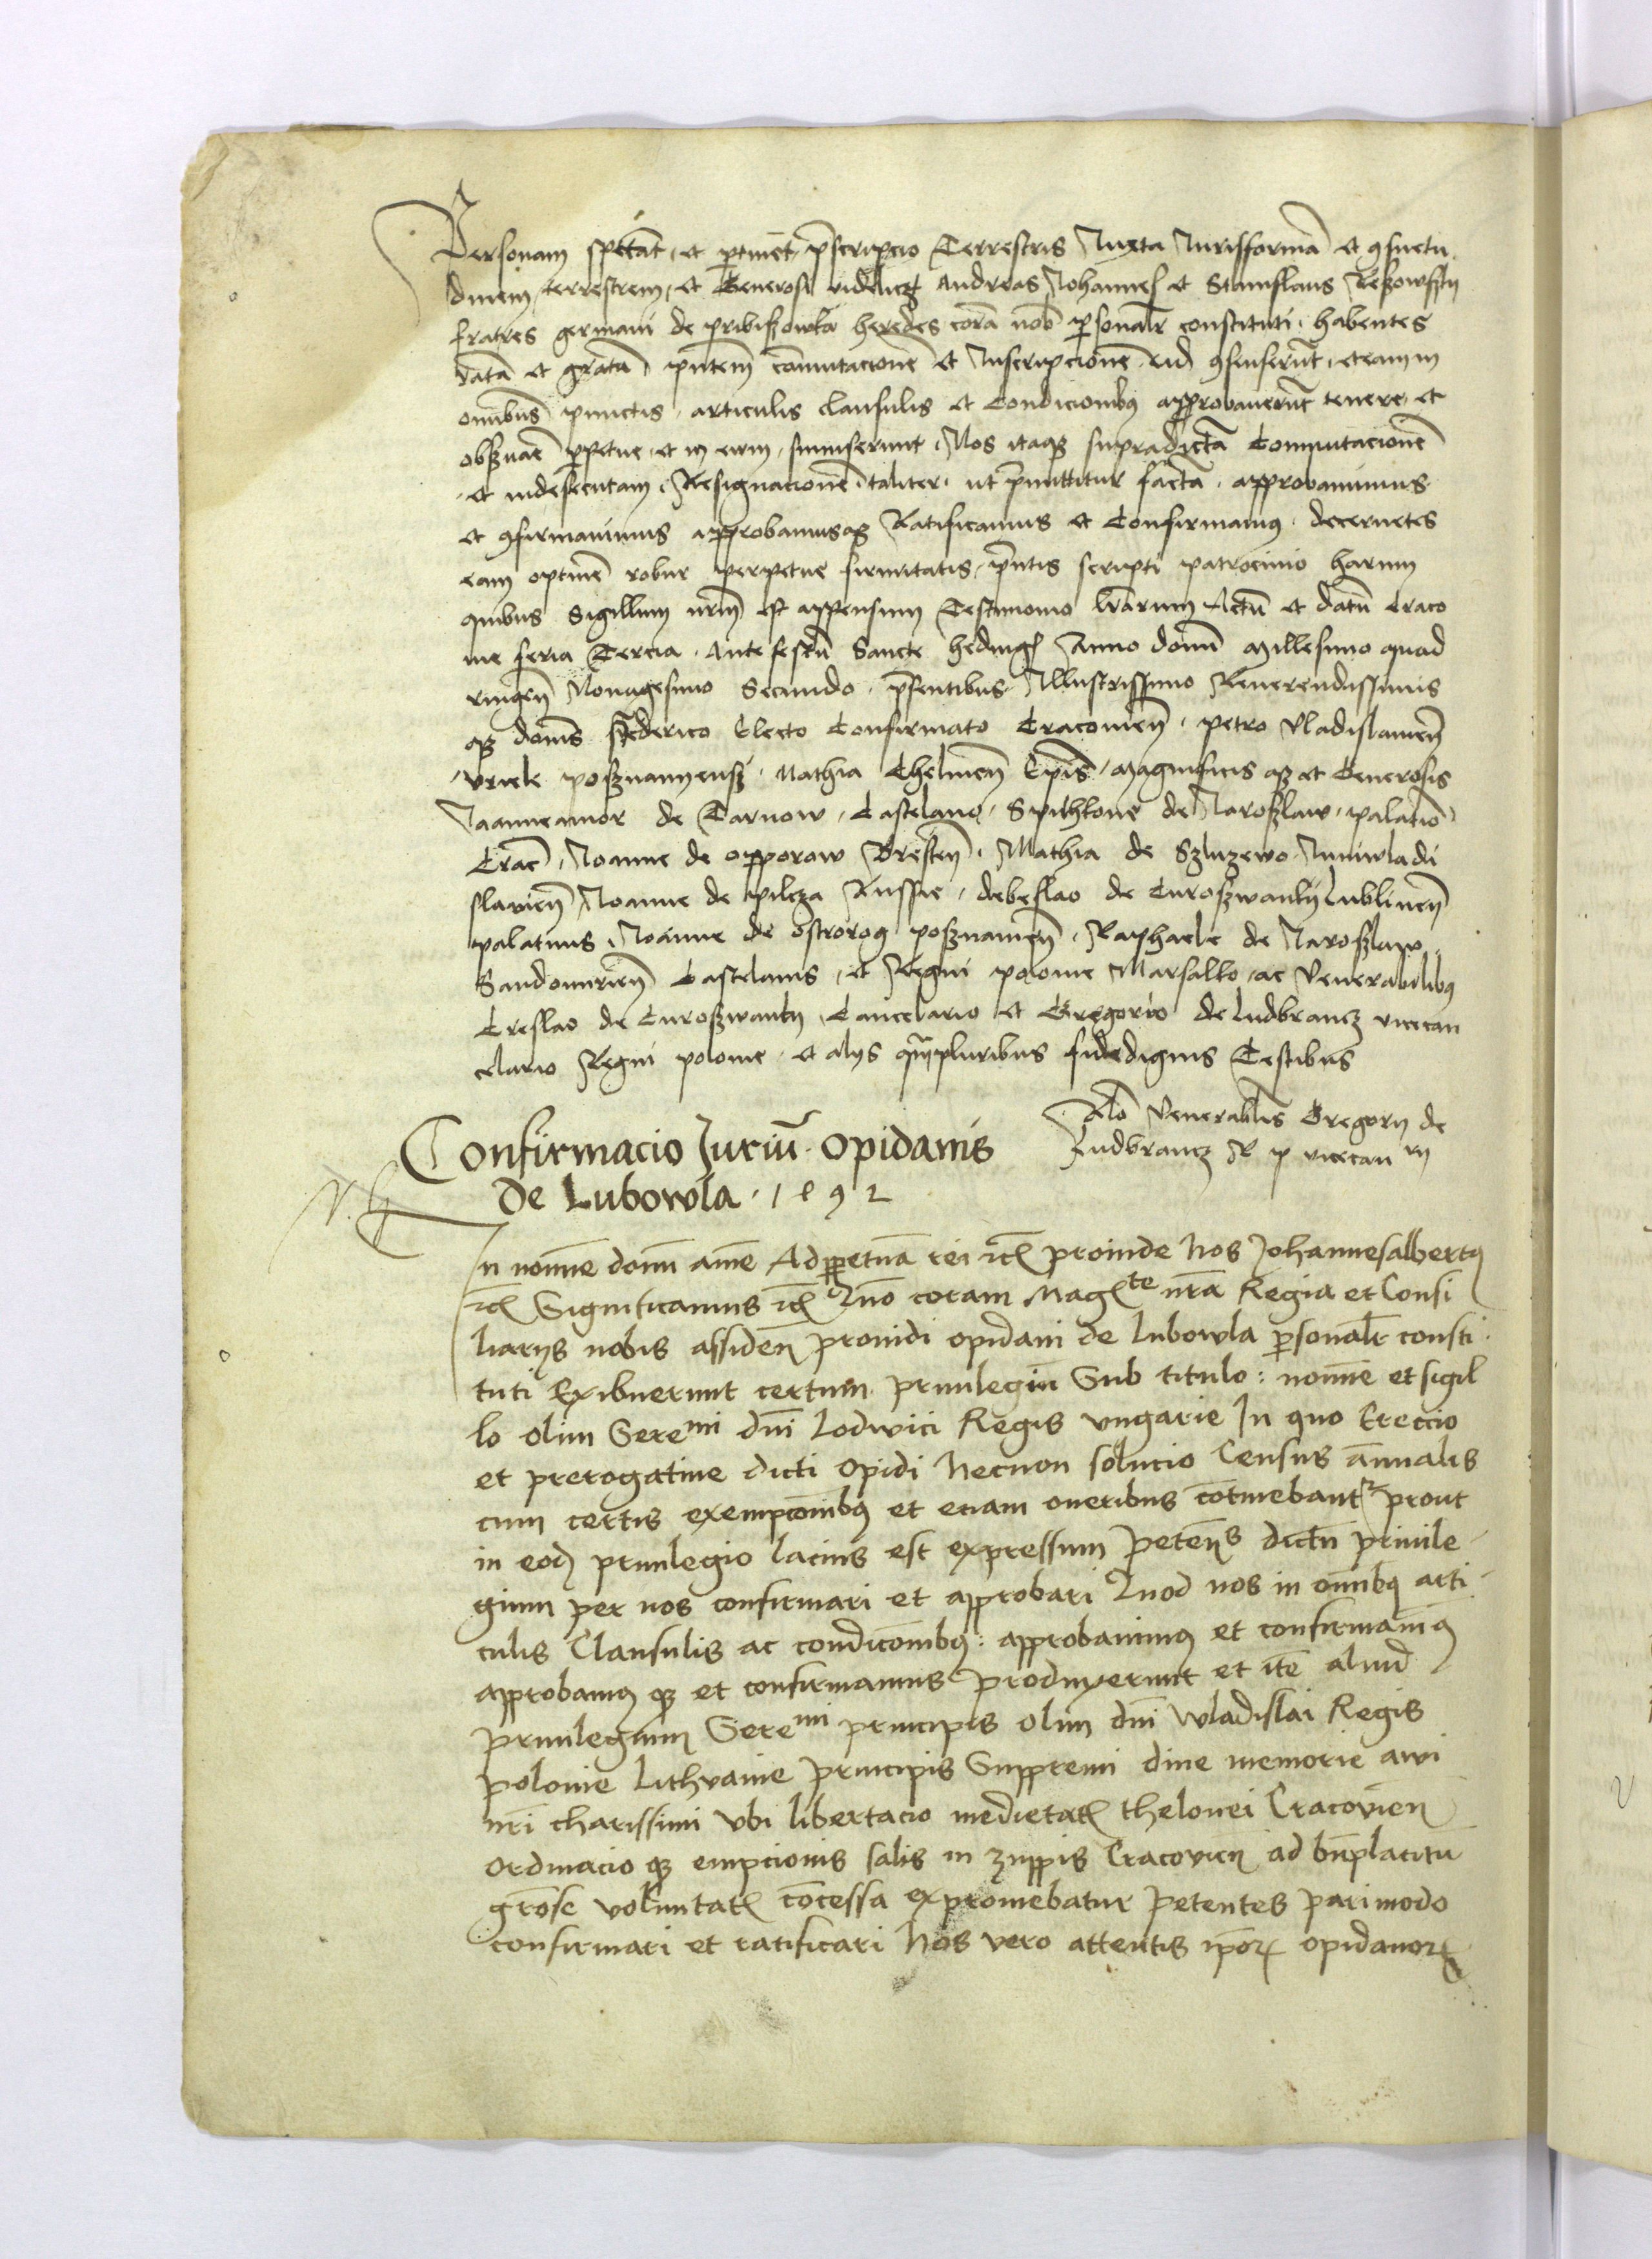 Personam spectāt et ꝑtinēt p̄scripcio Terrestris Iuxta Iurisformā et ꝯsuetu
dinem terrestrem, et Generosi videlicȝ Andreas Iohannes et Stanislaus Reszowszky
fratres germani de pribiszowka heredes corā nob̄ ꝑsonalr̄ constituti habentes
ratā et gratā pn̄tem cōmutacionē et Inscripcionē eid ꝯsenserūt, et eam in
omībus punctis articulis clausulis et Condicionibꝰ approbauerūt tenere et
obseruare ꝑpetue et in eum Nos itaqȝ supradictā Commutacionē
et indesecutam Resignacionē taliter ut p̄mittitur factā approbauimus
et ꝯfirmauimus approbamusqȝ Ratificamus et Confirmamꝰ decernētes
eam optinē robur perpetue firmitatis, pn̄tis scripti patrocinio harum
quibus Sigillum nr̄m est appensum Testimonio lr̄arum Actū et datū Craco
uie feria Tercia Ante festū Sancte hedwigꝭ Anno domī Millesimo quad
ringen̄ Nonagesimo Secundo p̄sentibus Illustrissimo Reuerendissimis
qȝ domīs frederico Electo Confirmato Cracouien̄ petro Vladislauien̄
Vriele posznanyensz Mathia Chelmen̄ Ep̄is Magnificis qȝ et Generosis
Iaanneamor de Tarnow Castelano Spithkone de Iaroszlaw palatīo
Crac̄ Ioanne de opporow Bresten̄ Mathia de Szluzewo Iuniwladi
slauien̄ Ioanne de pilcza Russie debeslao de Curoszwanky Lublinen̄
palatinis Ioanne de ostrorog posznanien̄ Raphaele de Iaroszlaw
Sandomirien̄ Castelanis et Regni polonie Marsalko ac Venerabilibꝰ
Creslao de Curoszwanky Cancelario et Gregorio de Ludbrancz vicecan
celario Regni polonie et alys qꝫpluribus fidedignis Testibus
Rlo Venerablis Gregory de
Ludbrancz R p vicecan
Confirmacio Juriū Opidanis
De Lubowla 1492
In noīne domī amē Ad ꝑpetuā rei ꝛcꝭ proinde Nos Johannesalbertꝰ
ꝛcꝭ Significamus ꝛcꝭ Quo coram Magꝭte nr̄a Regia et Consi
liarys nobis assiden̄ prouidi opidani de Lubowla ꝑsonalr̄ consti
tuti Exibuerunt certum priuilegiū Sub titulo: noīe et sigil
lo olim Sereᵐⁱ dn̄i Lodwici Regis vngarie In quo Ereccio
et prerogatiue dicti Opidi Necnon solucio Census annalis
cum certis exempconibꝰ et eciam oneribus cōtinebantʳ prout
in eod̄ priuilegio lacius est expressum petēn̄s dictū priuile
gium per nos confirmari et approbari Quod nos in oīmbꝰ arti
culis Clausulis ac condicōnibꝰ: approbauimꝰ et confirmauimꝰ
approbamꝰ qȝ et confirmamus Produxerunt et itē aliud
priuilegium Sereᵐⁱ principis olim dn̄i Wladislai Regis
polonie Lithvanie principis Suppremi diue memorie awi
nr̄i charissimi Vbi libertacio medietatꝭ thelonei Cracovien̄
ordinacio qȝ empcionis salis in zuppis Cracovien̄ ad bn̄placitū
grōse voluntatꝭ cōcessa expromebatur petentes pari modo
confirmari et ratificari Nos vero attentis ip̄orꝝ opidanorꝝ